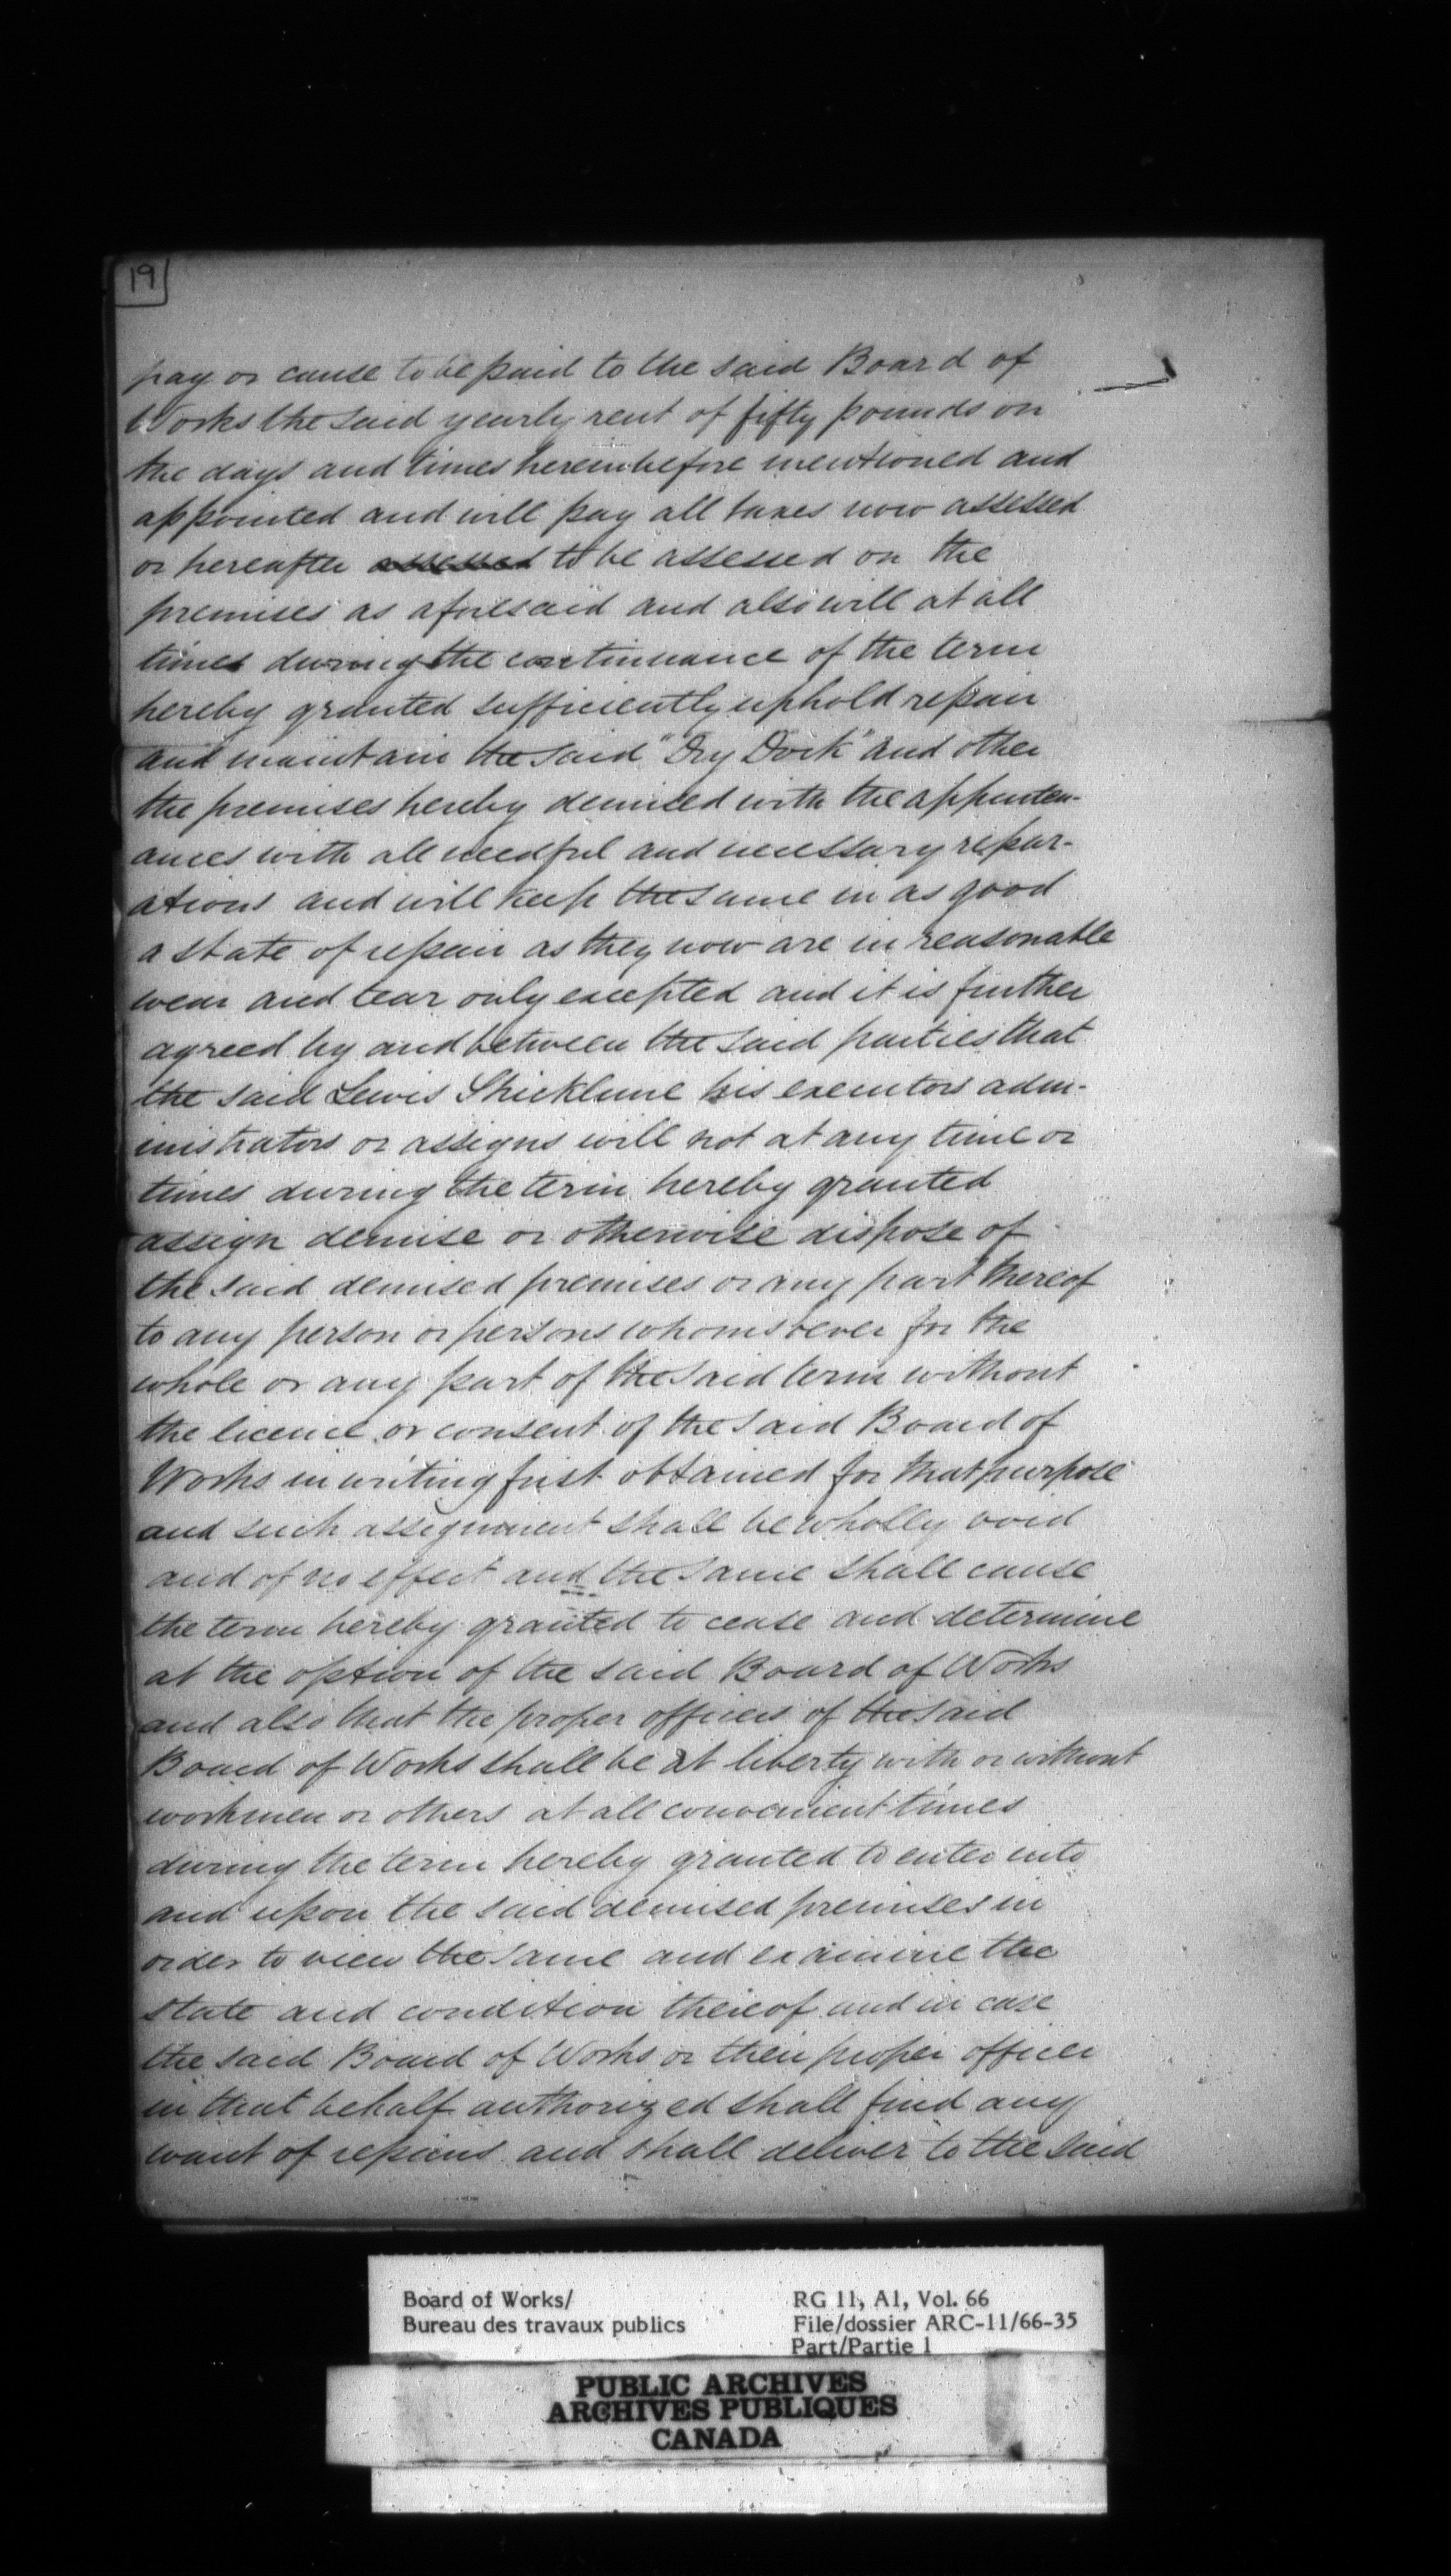 19
pay or cause to be paid to the said Board of
Works the said yearly rent of fifty pounds on
the days and times hereinbefore mentioned and
appointed and will pay all taxes now assessed
or hereafter assessed to be assessed on the
premises as aforesaid and also will at all
times during the continuance of the term
hereby granted sufficiently uphold repair
and maintain the said "Dry Dock" and other
the premises hereby demised with the appurten-
ances with all needful and necessary repar-
ations and will keep the same in as good
a state of repair as they now are in reasonable
wear and tear only excepted and it is further
agreed by and between the said parties that
the said Lewis Shicklune his executors adm-
inistrators or assigns will not at any time or
times during the term hereby granted
assign demise or otherwise dispose of
the said demised premises or any part thereof
to any person or persons whomsoever for the
whole or any part of the said term without
the licence or consent of the said Board of
Works in writing first obtained for that purpose
and such assignment shall be wholly void
and of no effect and the same shall cause
the term hereby granted to cease and determine
at the option of the said Board of Works
and also that the proper officers of the said
Board of Works shall be at liberty with or without
workmen or others at all convenient times
during the term hereby granted to enter into
and upon the said demised premises in
order to view the same and examine the
state and condition thereof and in case
the said Board of Works or their proper officer
in that behalf authorized shall find any
want of repairs and shall deliver to the said
Board of Works/
Bureau des travaux publics
RG 11, A1, Vol. 66
File/dossier ARC-11/66-35
Part/Partie 1
PUBLIC ARCHIVES
ARCHIVES PUBLIQUES
CANADA